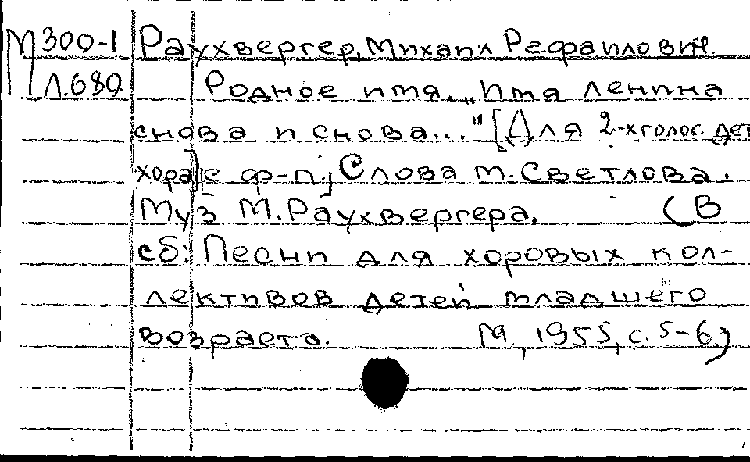 М 300-1 Раухвергер, Михаил Рафаилович.
Л.680 Родное имя. "Имя Ленина
снова и снова..." [Для 2-хголос. дет
хора] [с ф-п.] Слова М. Светлова.
Муз М. Раухвергера. (В
сб: Песни для хоровых кол-
лективов детей младшего
возраста. М, 1955, с. 5-6)